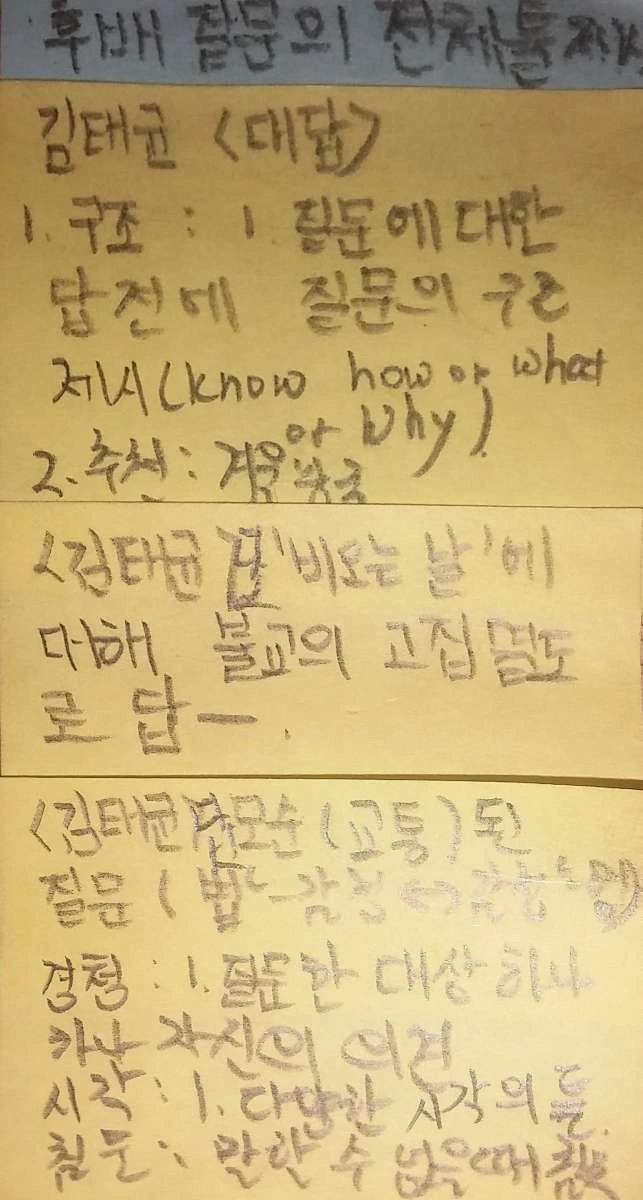 후배 질문의 전체틀
김태균 <대답>
1. 구조 : 1 질문에 대한
답 전에 질문의 구조
제시 (know how or what
or why)
2. 추천 : 겨울
<김태균 답 '비오는 날'에
대해 불교의 고집멸도
로 답ㅡ.
<김태균 답 모순 (고통) 된
질문 (법
경청 : 1. 질문한 대상 하나
하나 자신의 의견
시각 : 1. 다양한 시각의 틀.
침묵 : 말할 수 없을때 침묵